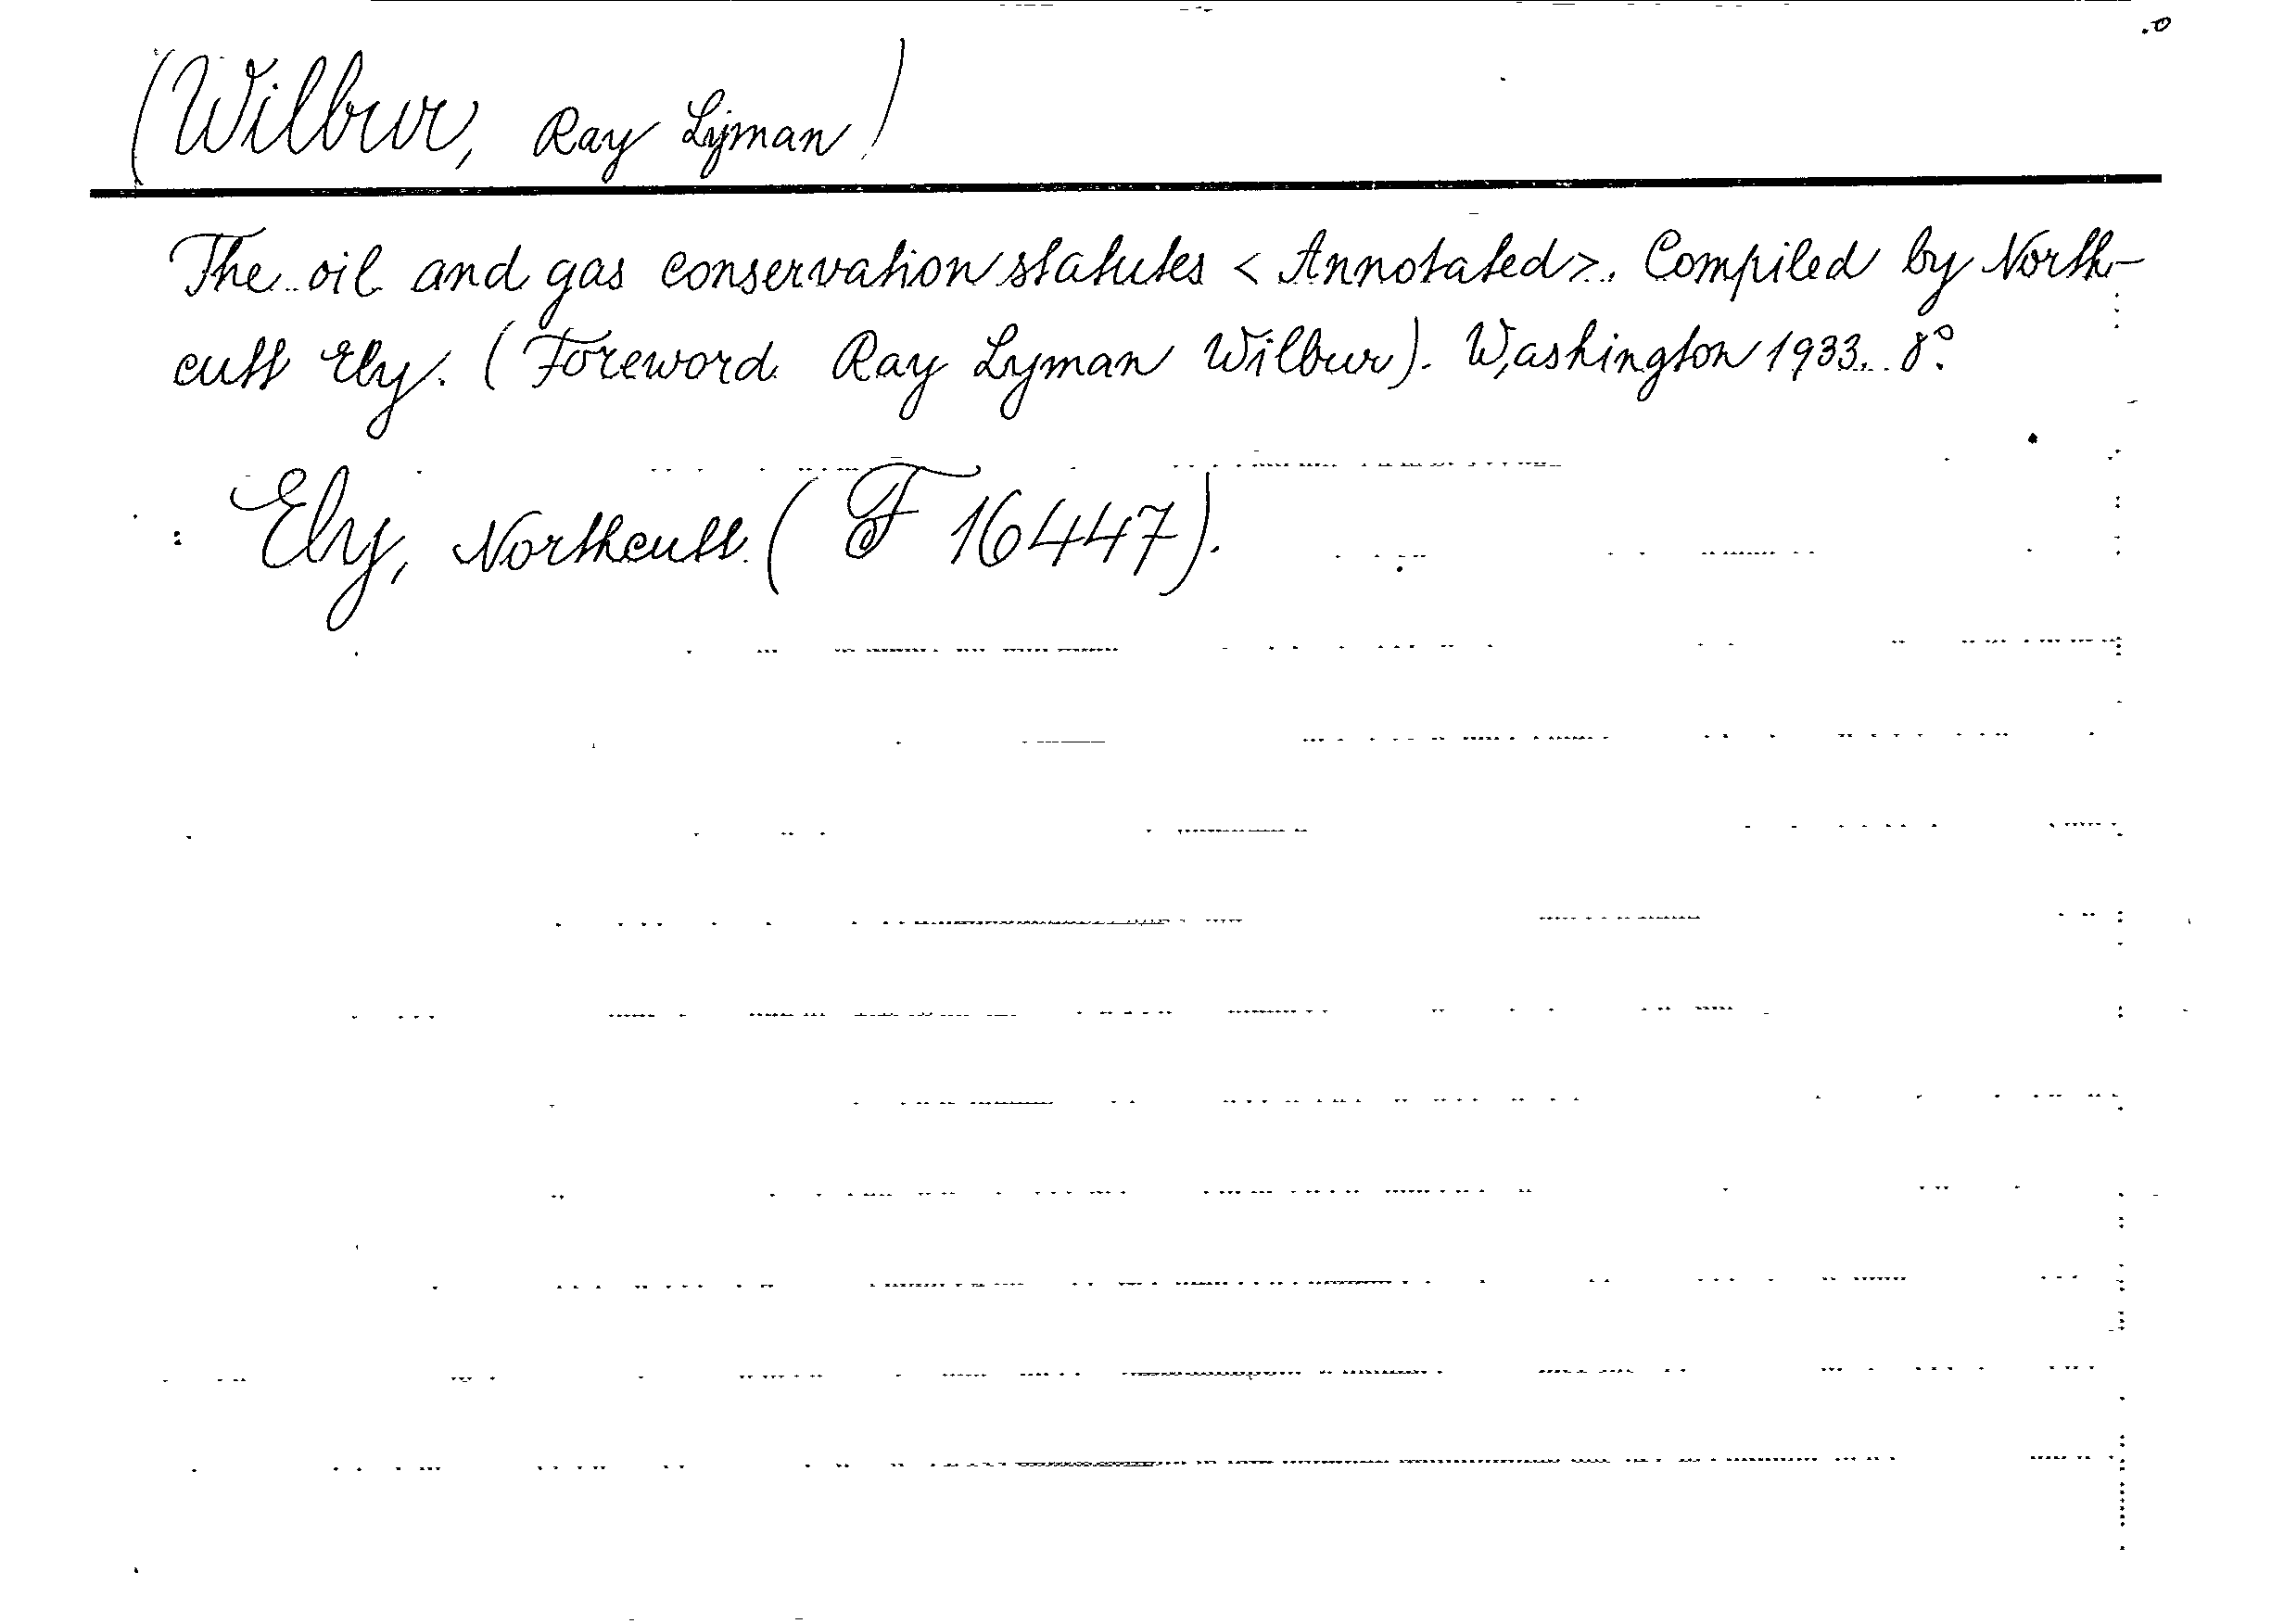 (Wilbur, Ray Lyman)
The oil and gas conservation statutes < Annotated >. Compiled by North-
cutt Ely. (Foreword Ray Lyman Wilbur). Washington 1933. 8°.
: Ely, Northcutt (F 16447).